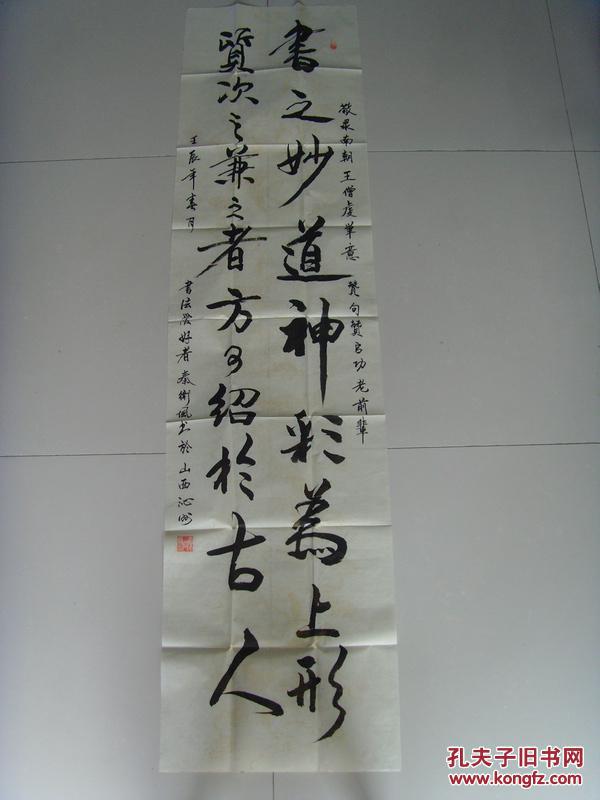 書之妙道神彩為上形
質次之兼之者方可紹於古人
敬录南朝王僧虔笔意赞句赞启功老前輩
壬辰年春月
書法爱好者秦衛
书於山西沁州
孔夫子旧书网
www.kongfz.com